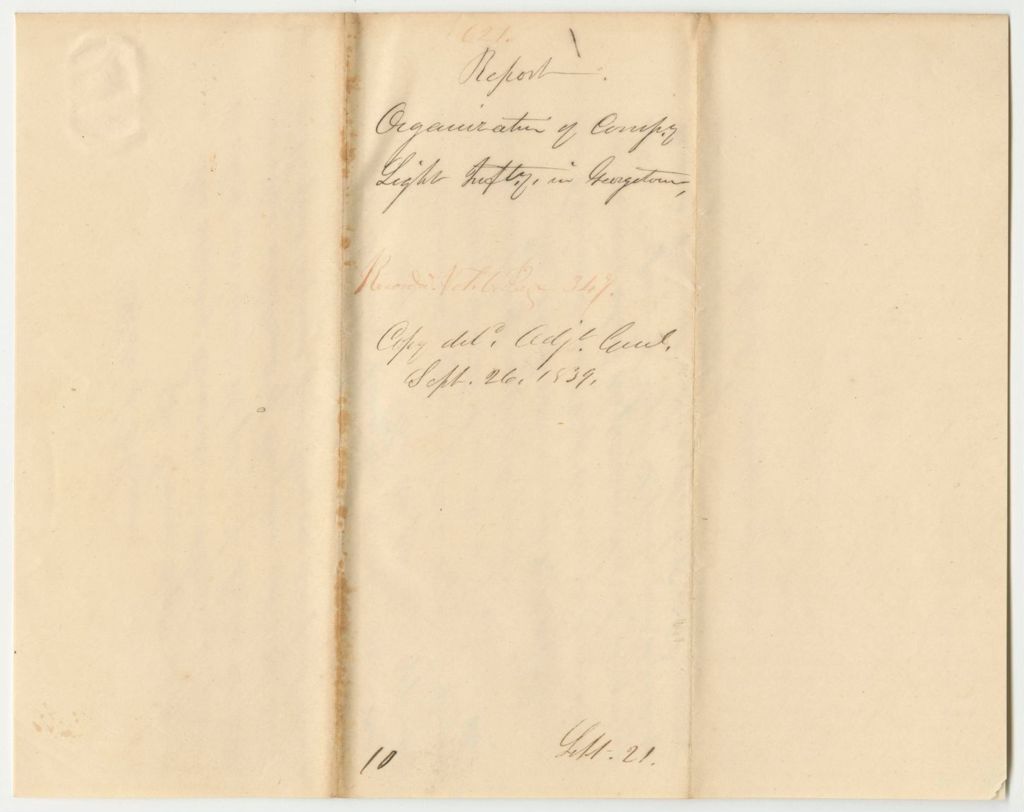 621.
Report.
Organization of Compy
Light Infty. in Georgetown,
Recorded Vol. 6 Page 347.
Copy deld. Adjt. Genl.
Sept. 26. 1839.
10
Sept. 21.